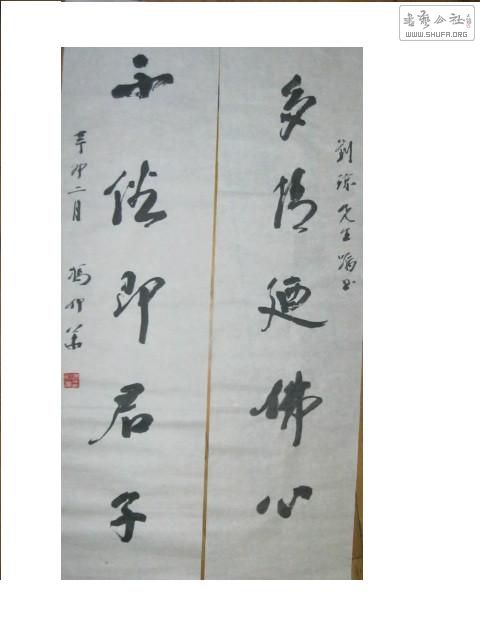 書藝公社
WWW.SHUFA.ORG
劉 先生囑書
多情廼佛心
不俗即君子
辛卯二月 馮